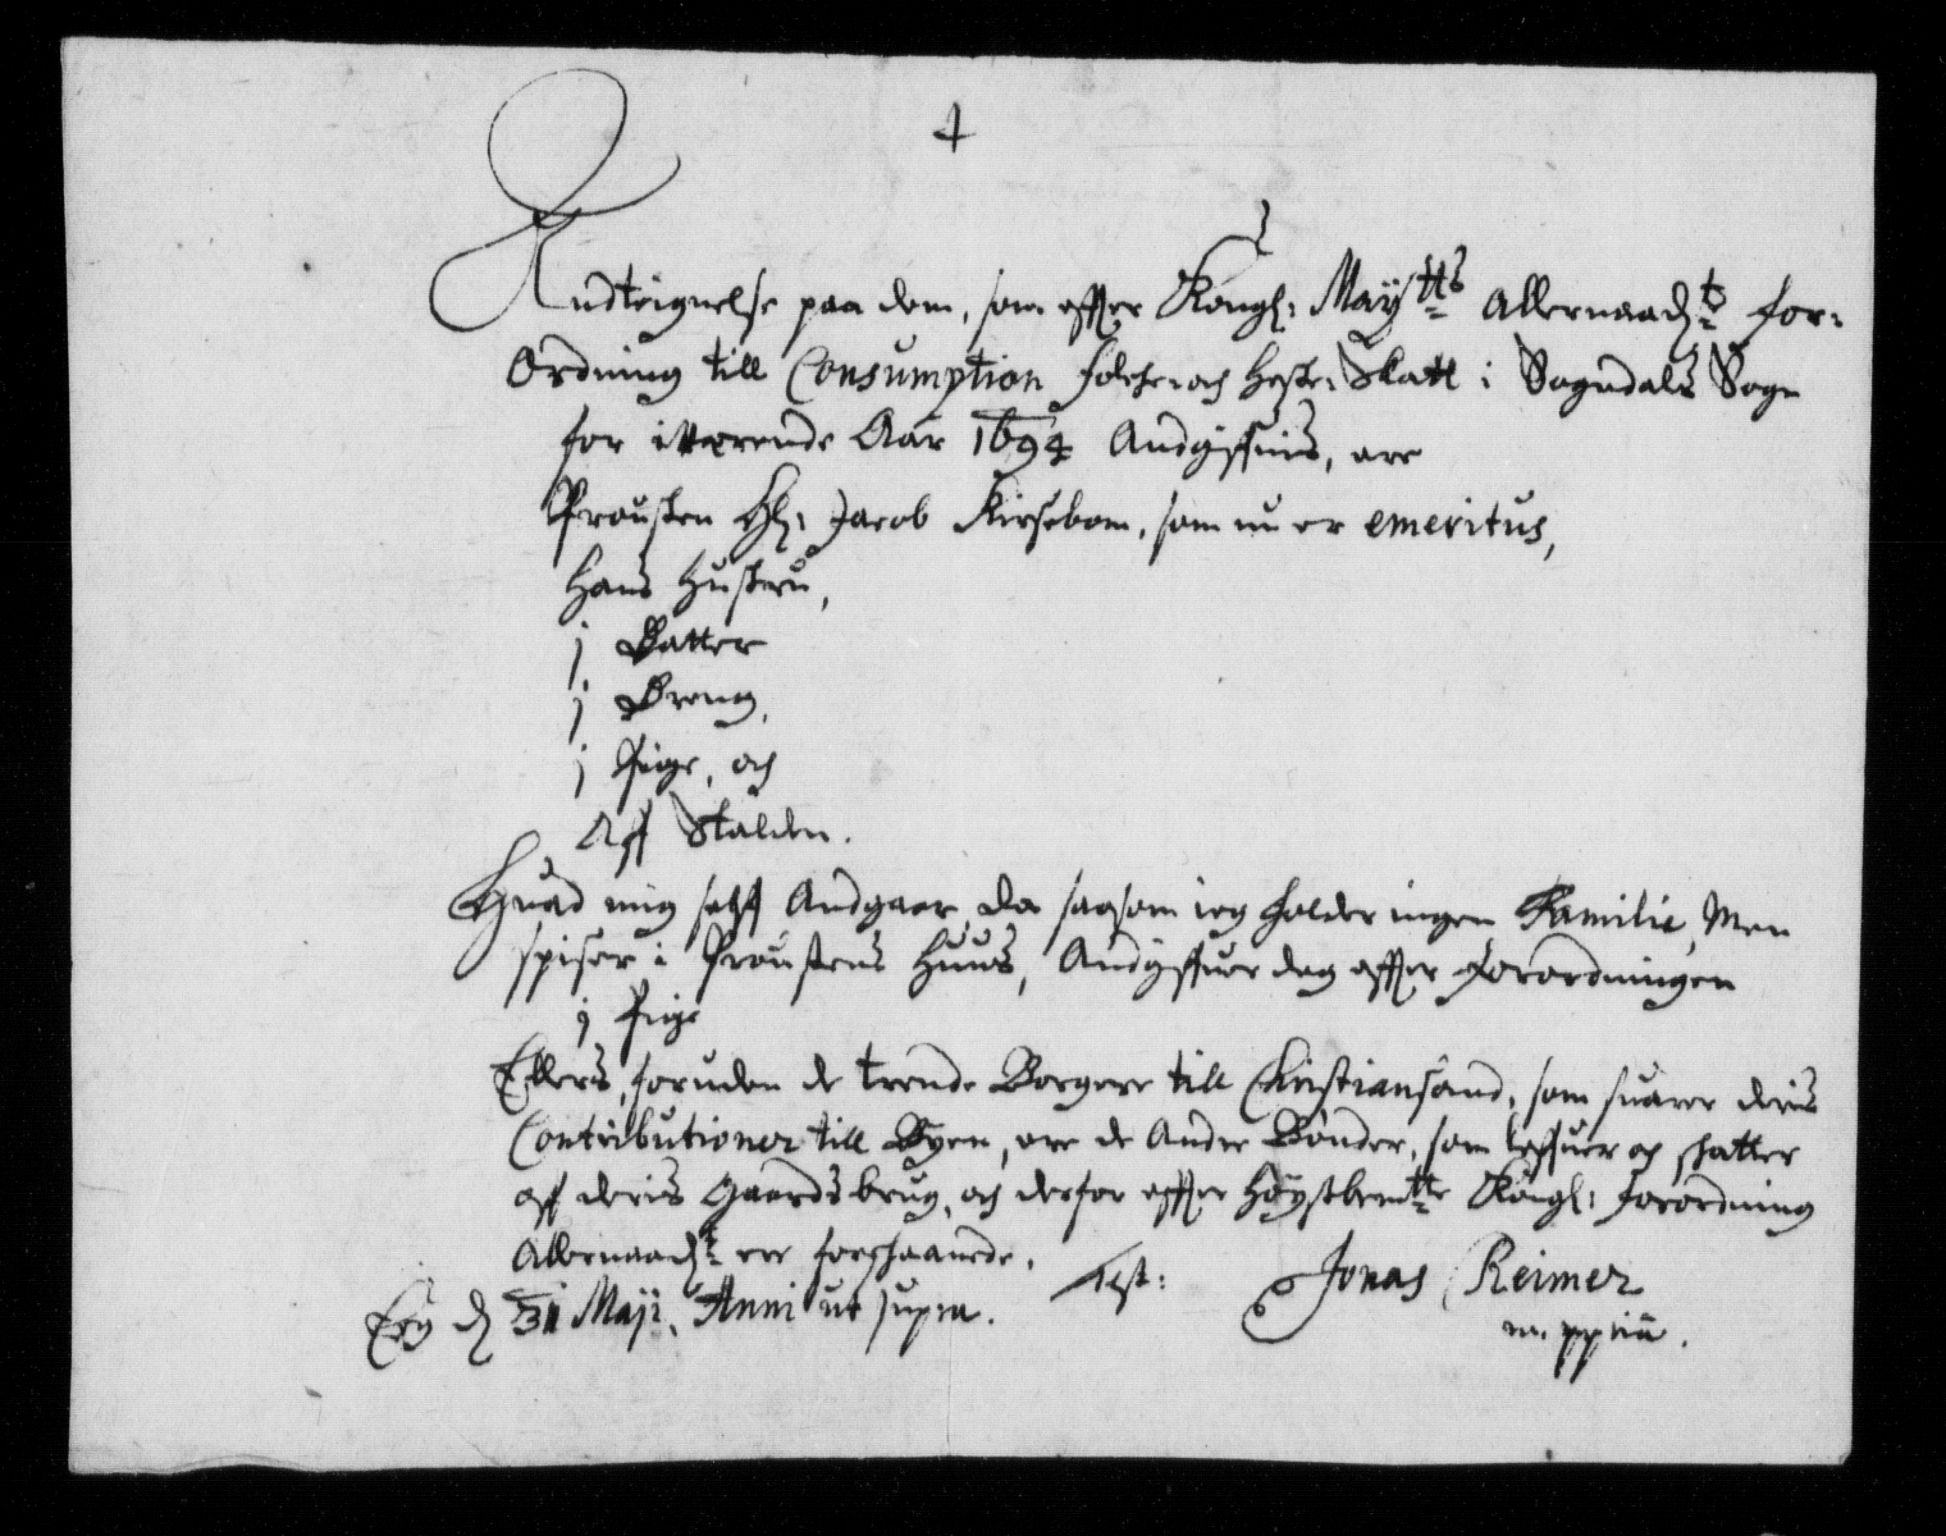 Andteignelse paa dem, som effter Kongl: Maÿtts Allernaadste for-
Ordning till Consumption Folche- och Heste-Skatt i Sogndals Sogn
for itwærende Aar 1694 Andgiffuis, ere
Prousten Hr: Jacob Kirsebom, som nu er emeritus,
Hans Hustru,
j Datter
j Dreng,
j Pige, och
Aff Stalden.
Huad mig selff Andgaar, da saasom ieg holder ingen Familie, Men
spiser i Proustens Huus, Andgiffuer dog effter Forordningen
j Pige
Ellers, foruden de trende Borgere till Christiansand, som suarer deris
Contributioner till Byen, ere de Andre Bønder, som leffuer og skatter
aff deris Gaards brug, och derfor effter Høystbemtte Kongl: Forordning
Allernaadst ere forskaanede.
Test: Jonas Reimer
d 31 Maji, Anni ut supra.
m. ppria.